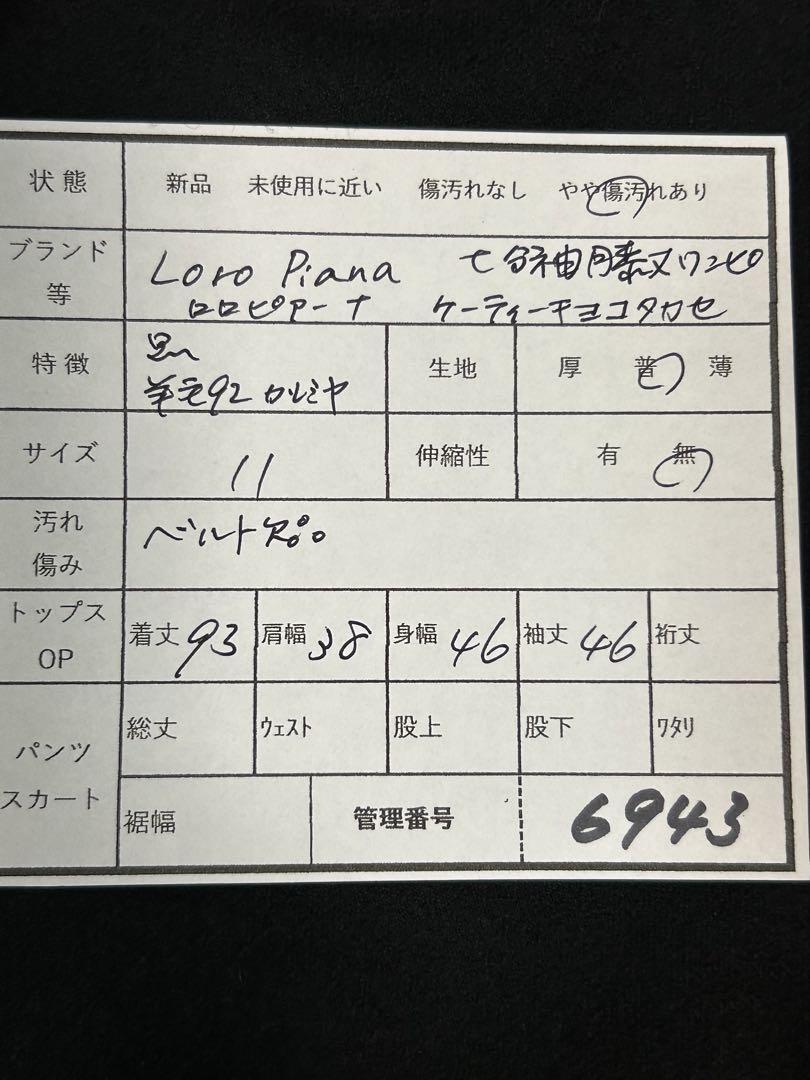 状態 新品 未使用に近い 傷汚れなし やや傷汚れあり
ブランド等 Loro Piana 七分袖膝丈ワンピ
ロロピアーナ ケーティーキヨコタカセ
特徴 黒
羊毛92 カシミヤ
生地 厚 普 薄
サイズ 11 伸縮性 有 無
汚れ傷み ベルト
トップス OP 着丈 93 肩幅 38 身幅 46 袖丈 46 裄丈
パンツ スカート 総丈 ウェスト 股上 股下 ワタリ
裾幅 管理番号 6943